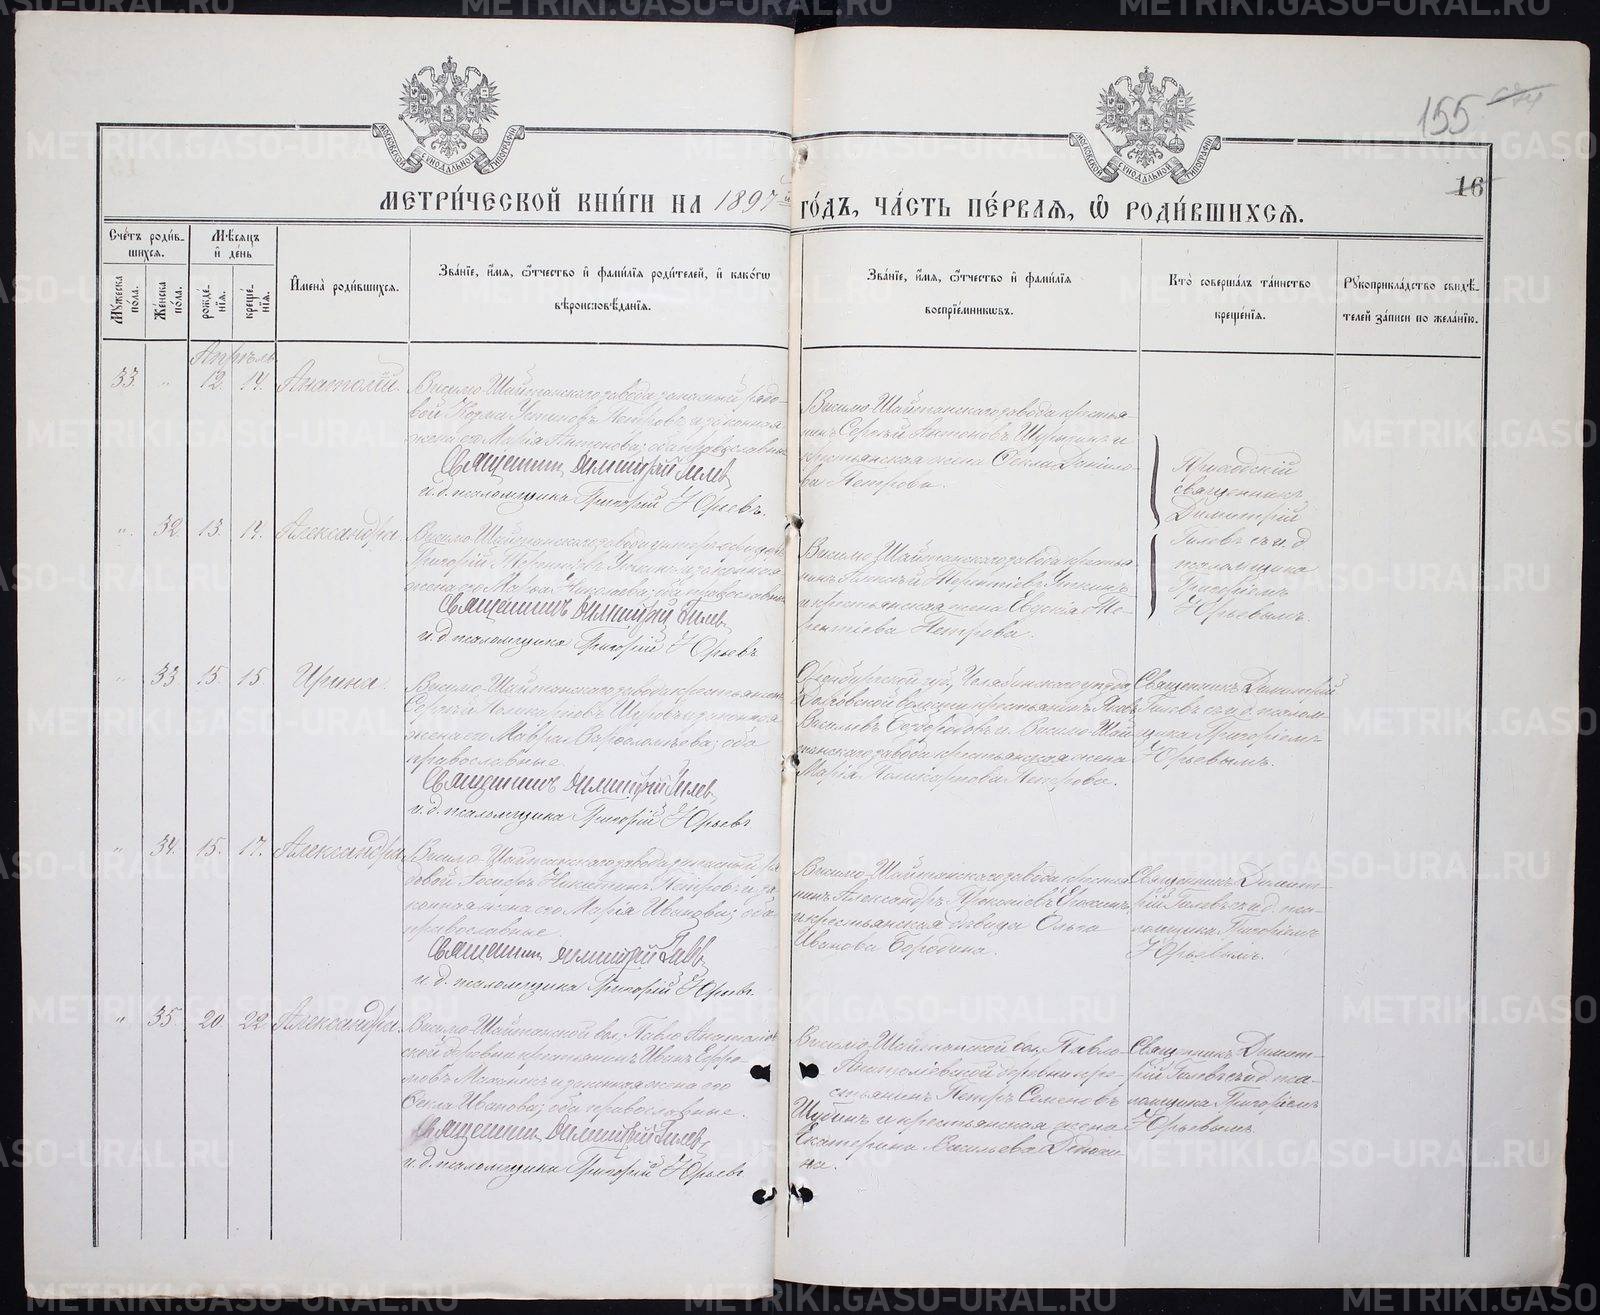 155
16
МЕТРИ́ЧЕСКОЙ КНИ́ГИ НА 1897й ГО́ДЪ, ЧА́СТЬ ПЕ́РВАЯ, Ѽ РОДИ́ВШИХСЯ.
МОСКОВСКОЙ СѴНОДАЛЬНОЙ ТИПОГРАФІИ
МОСКОВСКОЙ СѴНОДАЛЬНОЙ ТИПОГРАФІИ
Сче́тъ роди́вшихся.
Мꙋ́жеска пола.
Же́нска пола.
Мѣ́сяцъ и҆ де́нь
рожде́нїя.
креще́нїя.
И҆мена̀ роди́вшихся.
Зва́нїе, и҆́мя, ѻ҆́тчество и҆ фами́лїя роди́телей, и҆ како́гѡ
вѣроисповѣ́данїя.
Зва́нїе, и҆́мя, ѻ҆́тчество и҆ фами́лїя
воспрїе́мникѡвъ.
Кто̀ соверша́лъ та́инство
креще́нїя.
Рꙋкоприкла́дство свидѣ́-
телей за́писи по жела́нїю.
Апрѣль
33. " 12. 14. Анатолій.
Висимо-Шайтанскаго завода запасный рядо-
вой Козма Устиновъ Петровъ и законная
жена его Марія Антонова; оба православные
Священникъ Димитрій Гилевъ
и. д. псаломщика Григорій Юрьевъ.
Висимо-Шайтанскаго завода крестья-
нинъ Сергѣй Антоновъ и
крестьянская жена Ѳекла Данило-
ва Петрова.
Приходскій
священникъ
Димитрій
Гилевъ съ и. д.
псаломщика
Григоріемъ
Юрьевымъ.
" 32. 13. 14. Александра.
Висимо-Шайтанскаго завода
Григорій Терентіевъ Уткинъ и законная
жена его Марѳа Николаева; оба православные
Священникъ Димитрій Гилевъ
и. д. псаломщика Григорій Юрьевъ
Висимо-Шайтанскаго завода крестья-
нинъ Терентіевъ Уткинъ
и крестьянская жена Евдокія Те-
рентіева Петрова.
" 33. 15. 15. Ирина.
Висимо-Шайтанскаго завода крестьянинъ
Сергѣй Поликарповъ и законная
жена его Мавра Варѳоломѣева; оба
православные.
Священникъ Димитрій Гилевъ
и. д. псаломщика Григорій Юрьевъ
Оренбургской губ., Челябинскаго уѣзда,
волости крестьянинъ
Васильевъ и Висимо-Шай-
танскаго завода крестьянская жена
Марія Поликарпова Петрова.
Священникъ Димитрій
Гилевъ съ и. д. псалом-
щика Григоріемъ
Юрьевымъ.
" 34. 15. 17. Александра
Висимо-Шайтанскаго завода запасный ря-
довой Іосифъ Никитинъ Петровъ и за-
конная жена его Марія Иванова; оба
православные.
Священникъ Димитрій Гилевъ
и. д. псаломщика Григорій Юрьевъ
Висимо-Шайтанскаго завода крестья-
нинъ Александръ Прокопіевъ
и крестьянская дѣвица Ольга
Иванова Бородина.
Священникъ Димит-
рій Гилевъ съ и. д. пса-
ломщика Григоріемъ
Юрьевымъ.
" 35. 20. 22. Александра.
Висимо-Шайтанской вол. Павло-Анатолiев-
ской деревни крестьянинъ Иванъ Ефре-
мовъ и законная жена его
Ѳекла Иванова; оба православные.
Священникъ Димитрій Гилевъ
и. д. псаломщика Григорій Юрьевъ
Висимо-Шайтанской вол. Павло-
Анатоліевской деревни кре-
стьянинъ Петръ Семеновъ
Шубинъ и крестьянская жена
Екатерина Васильева
Священникъ Димит-
рій Гилевъ съ и. д. пса-
ломщика Григоріемъ
Юрьевымъ.
METRIKI.GASO-URAL.RU